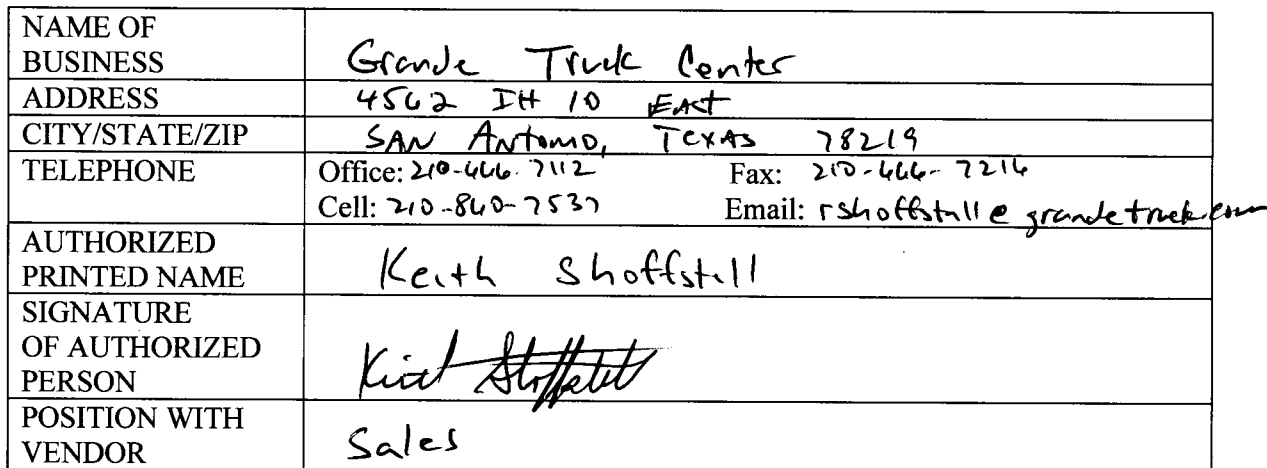 NAME OF
BUSINESS Grande Truck Center
ADDRESS 4562 IH 10 EAST
CITY/STATE/ZIP SAN Antonio, Texas 78219
TELEPHONE Office: 210-666-7112 Fax: 210-666-7216
Cell: 210-860-7537 Email: rshoffstall@grandetruck.com
AUTHORIZED
PRINTED NAME Keith Shoffstall
SIGNATURE
OF AUTHORIZED
PERSON Keith Shoffstall
POSITION WITH
VENDOR Sales